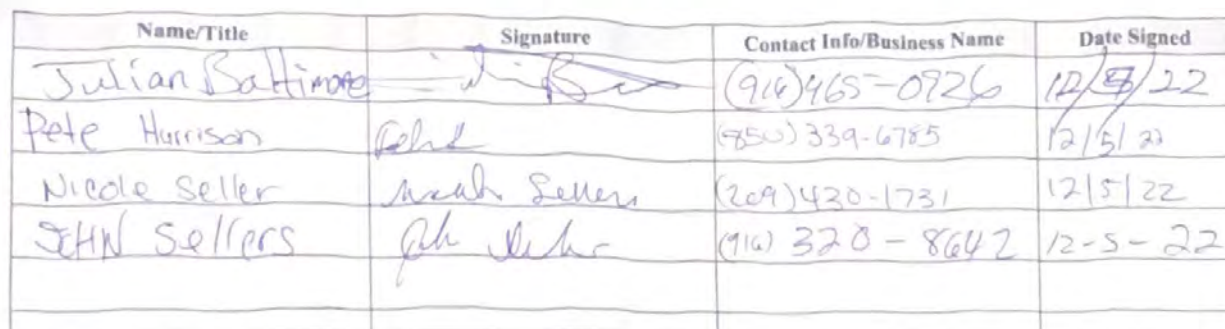 Name/Title Signature Contact Info/Business Name Date Signed
Julian Baltimore (916)465-0926 12/5/22
Pete Harrison (850) 339-6785 12/5/22
Nicole Seller Nicole Sellers (209)430-1731 12/5/22
JOHN Sellers (916) 320-8642 12-5-22